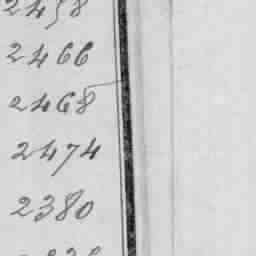 2458
2466
2468
2474
2380